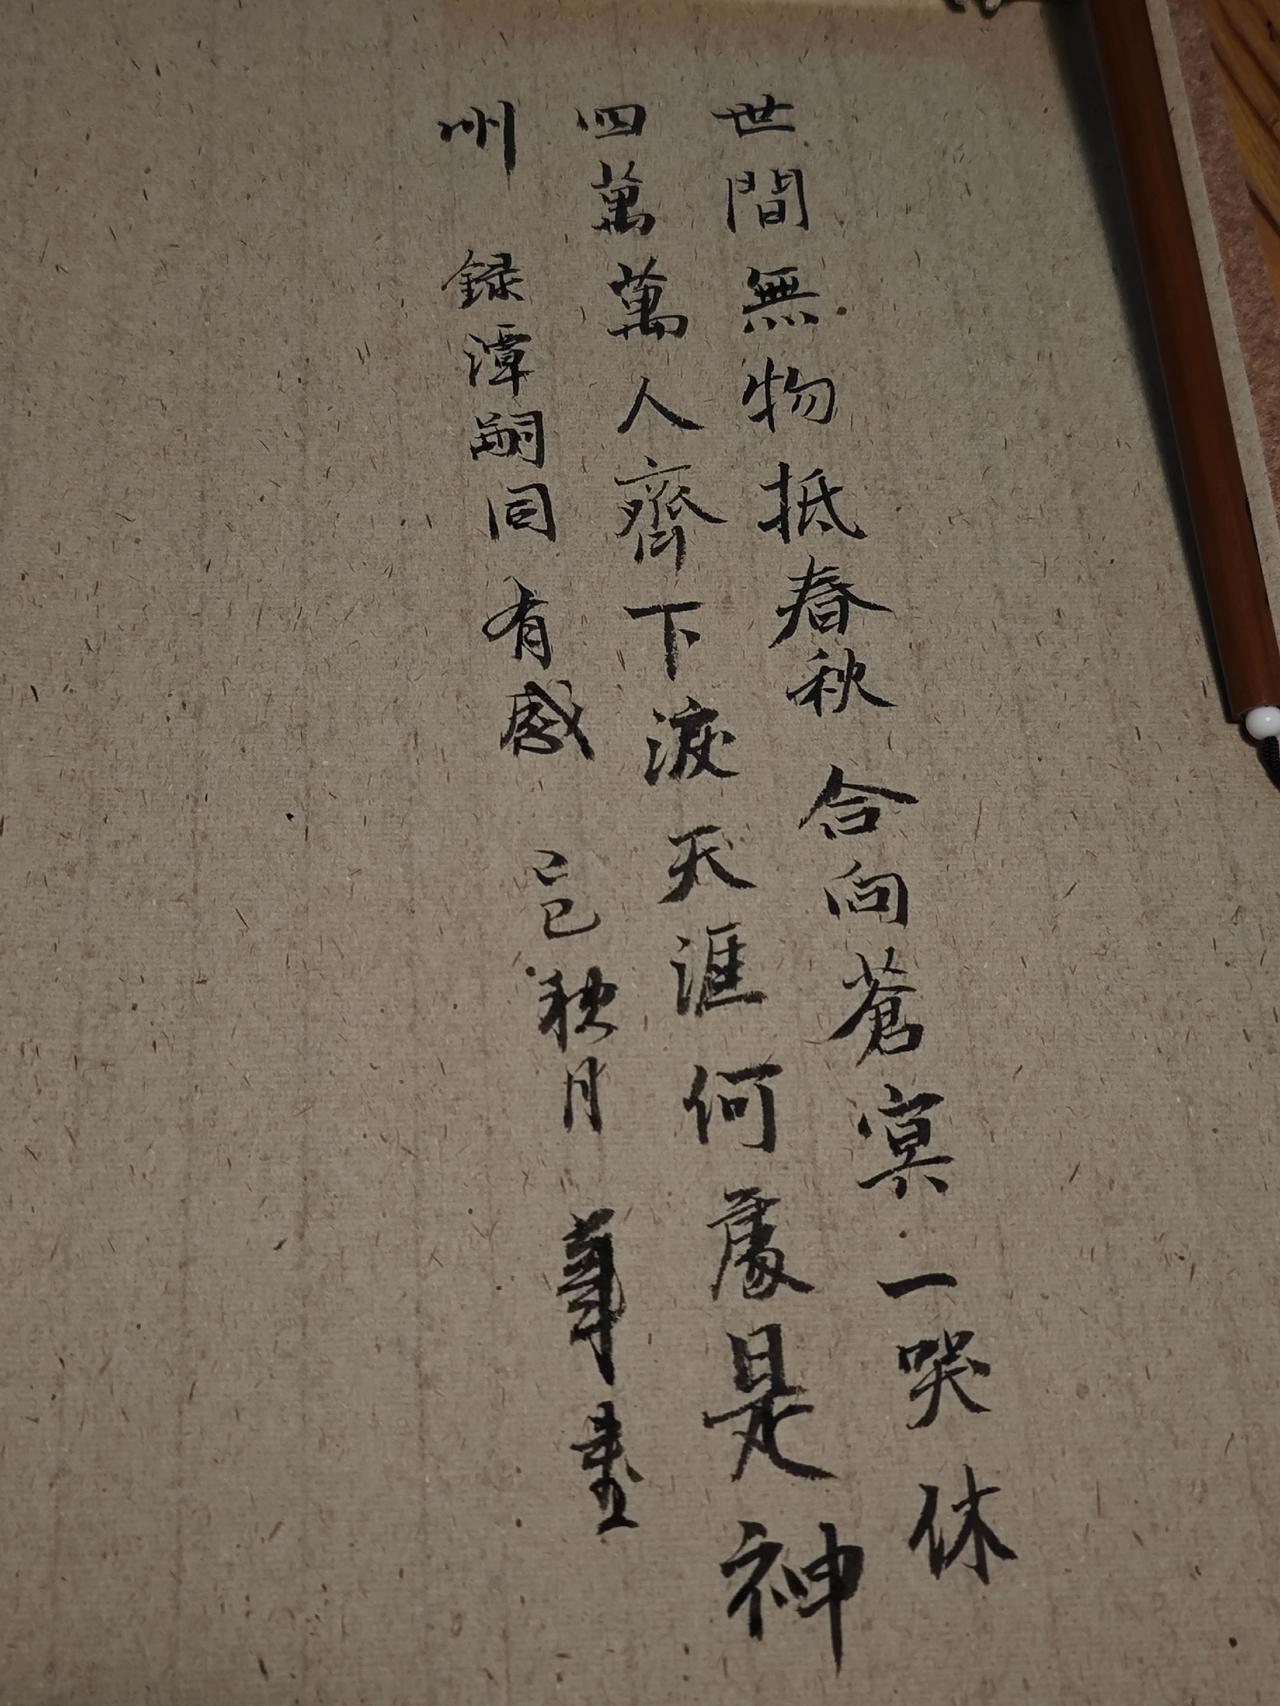 世間無物抵春秋合向蒼冥一哭休
四萬萬人齊下淚天涯何處是神
州 録潭嗣同有感 己巳秋月